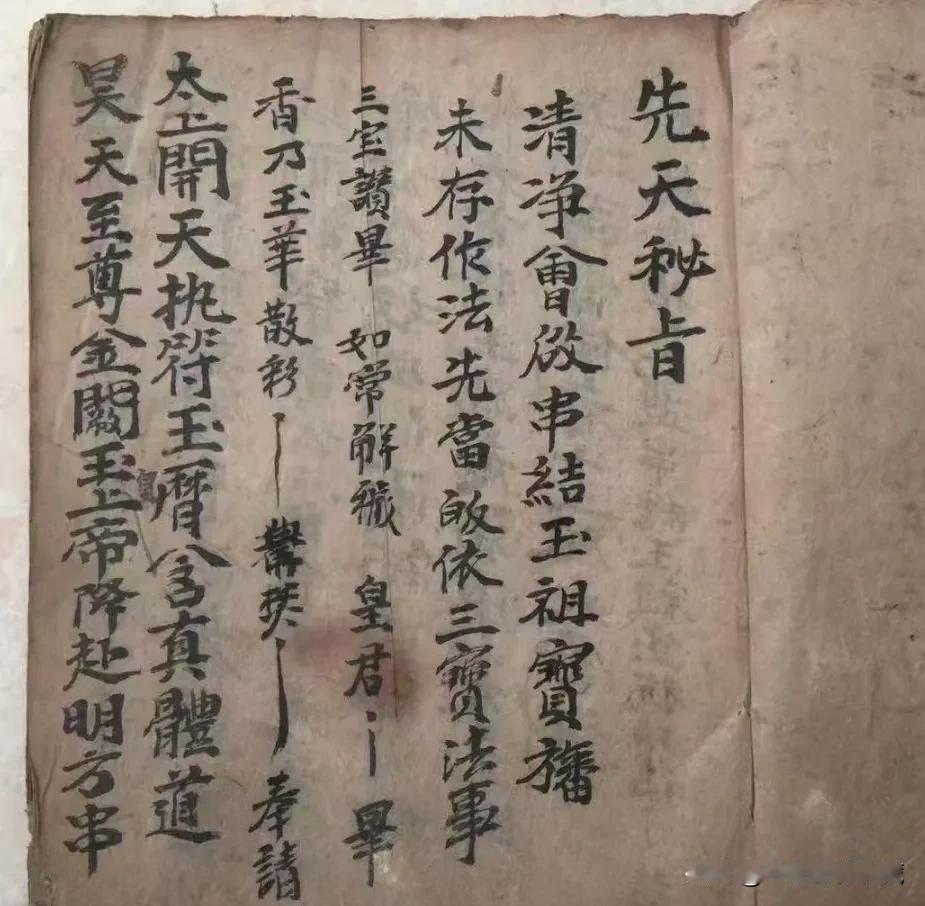 先天秘旨
清净會啟串結玉祖寶旛
未存作法先當皈依三寶法事
三宝讚畢 如常解穢 皇君 畢
香乃玉華散彩 奉請
太上開天执符玉曆含真體道
昊天至尊金闕玉上帝降赴明方串